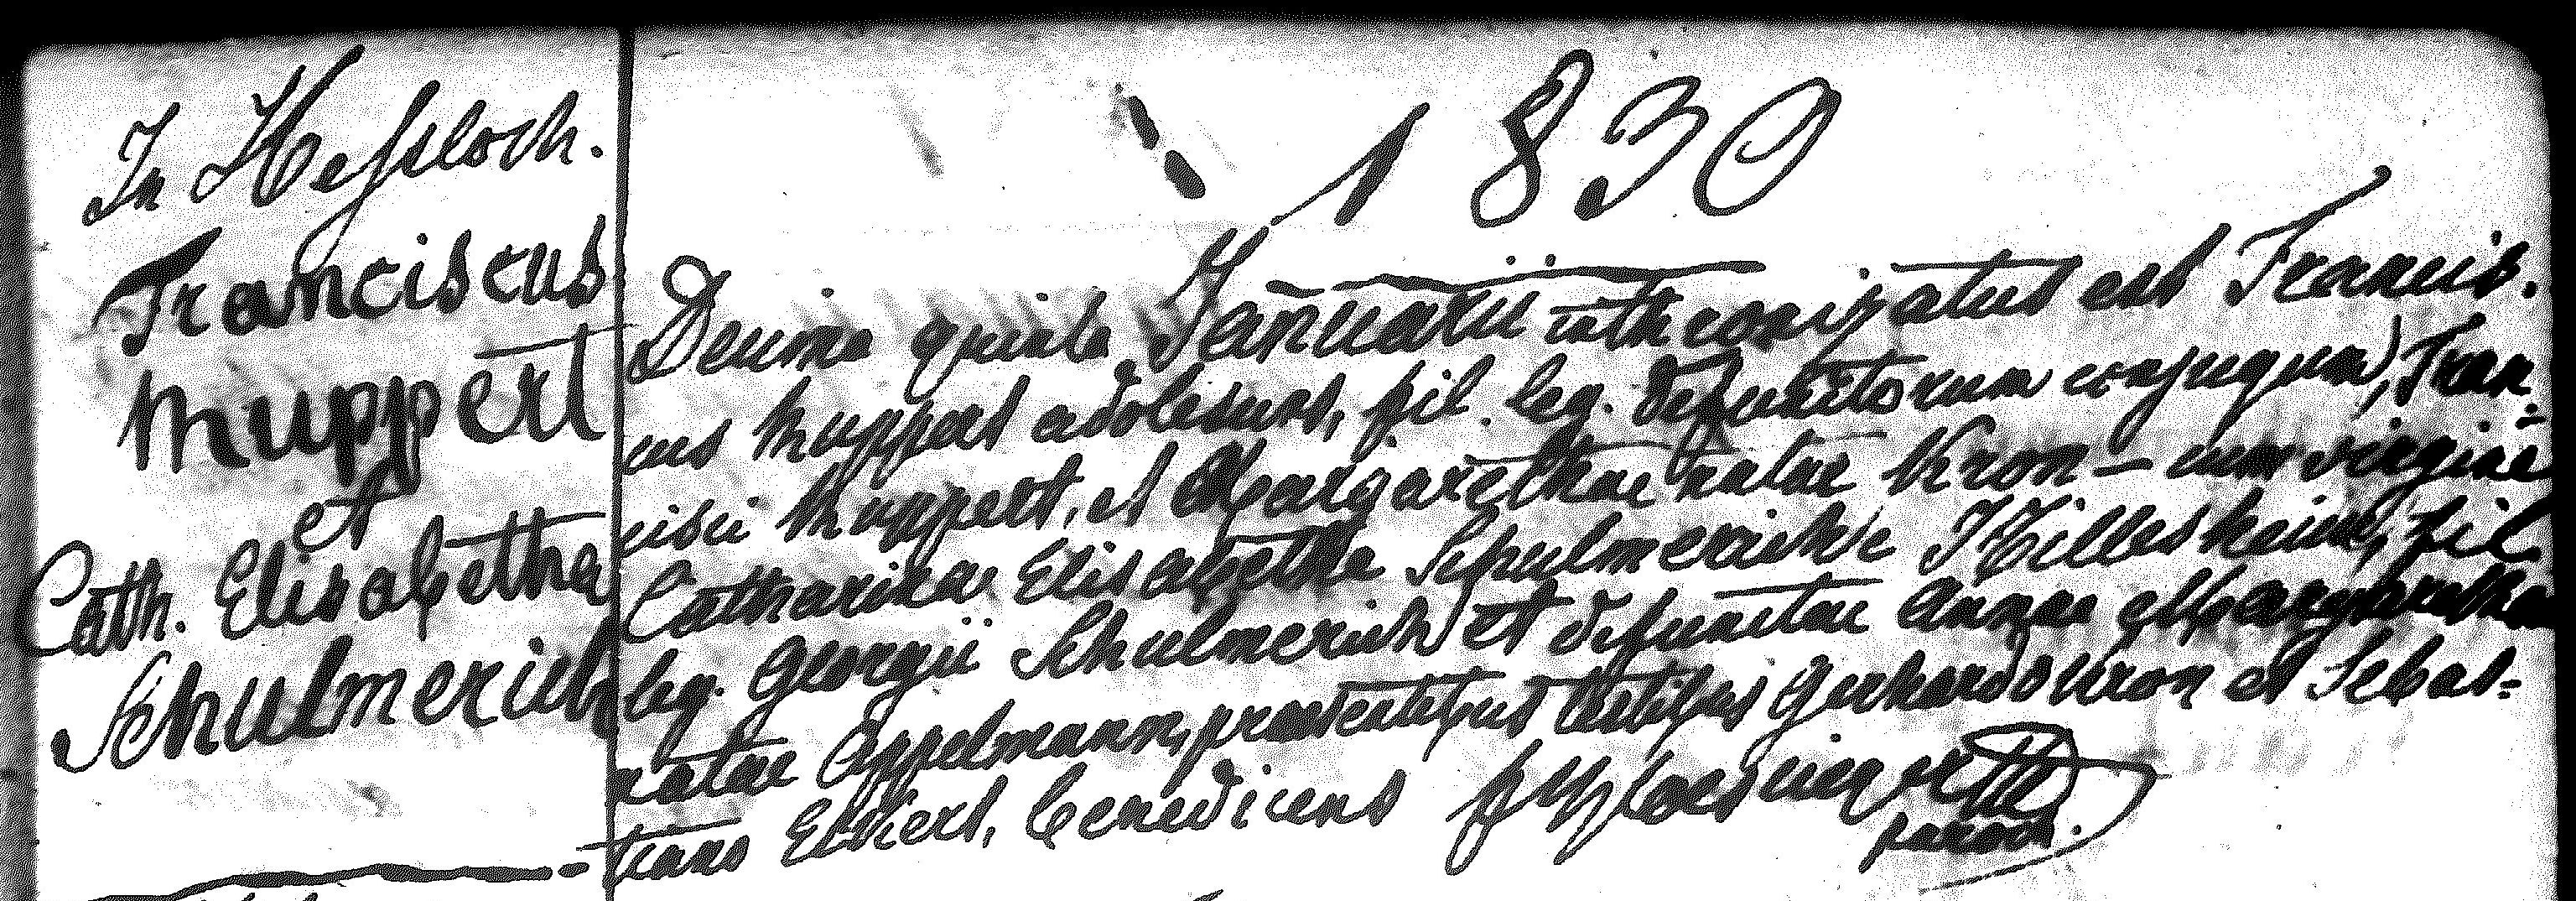 In Hessloch.
Franciscus
Muppert
et
Cath. Elisabetha
Schulmerich
1830
Decima quinta Januarii inthronizatus est Francis.
cus Muppert adolescens, fil. leg. defunctorum conjugum, Fran-
cisci Muppert, et Margarethae natae Kron – cum virgine
Catharina Elisabetha Schulmerich e Hillesheim, fil.
leg. Georgii Schulmerich et defunctae Annae Margarethae
natae Appelmann, praesentibus testibus Gerhardo Kron et Sebas-
tiano Eckert, benedicens
paroch.